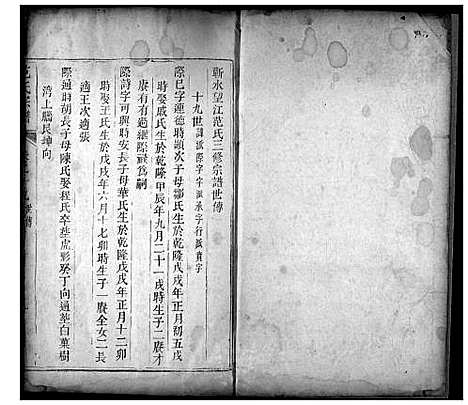 蘄水望江范氏三修宗譜世傳
十九世諱派際字字派承字行派貴字
際巳字連德時顯次子母鄒氏生於乾隆戊戌年正月初五戌
時娶戚氏生於乾隆甲辰年九月二十一戌時生子二賡才
賡有有過繼際祿爲嗣
際詩字可興時安長子母華氏生於乾隆戊戌年正月十二卯
時娶王氏生於戊戌年六月十七卯時生子一賡全女二長
適王次適張
際適時朝長子母陳氏娶程氏卒塟虎形癸丁向過塟白菓樹
灣上腦艮坤向